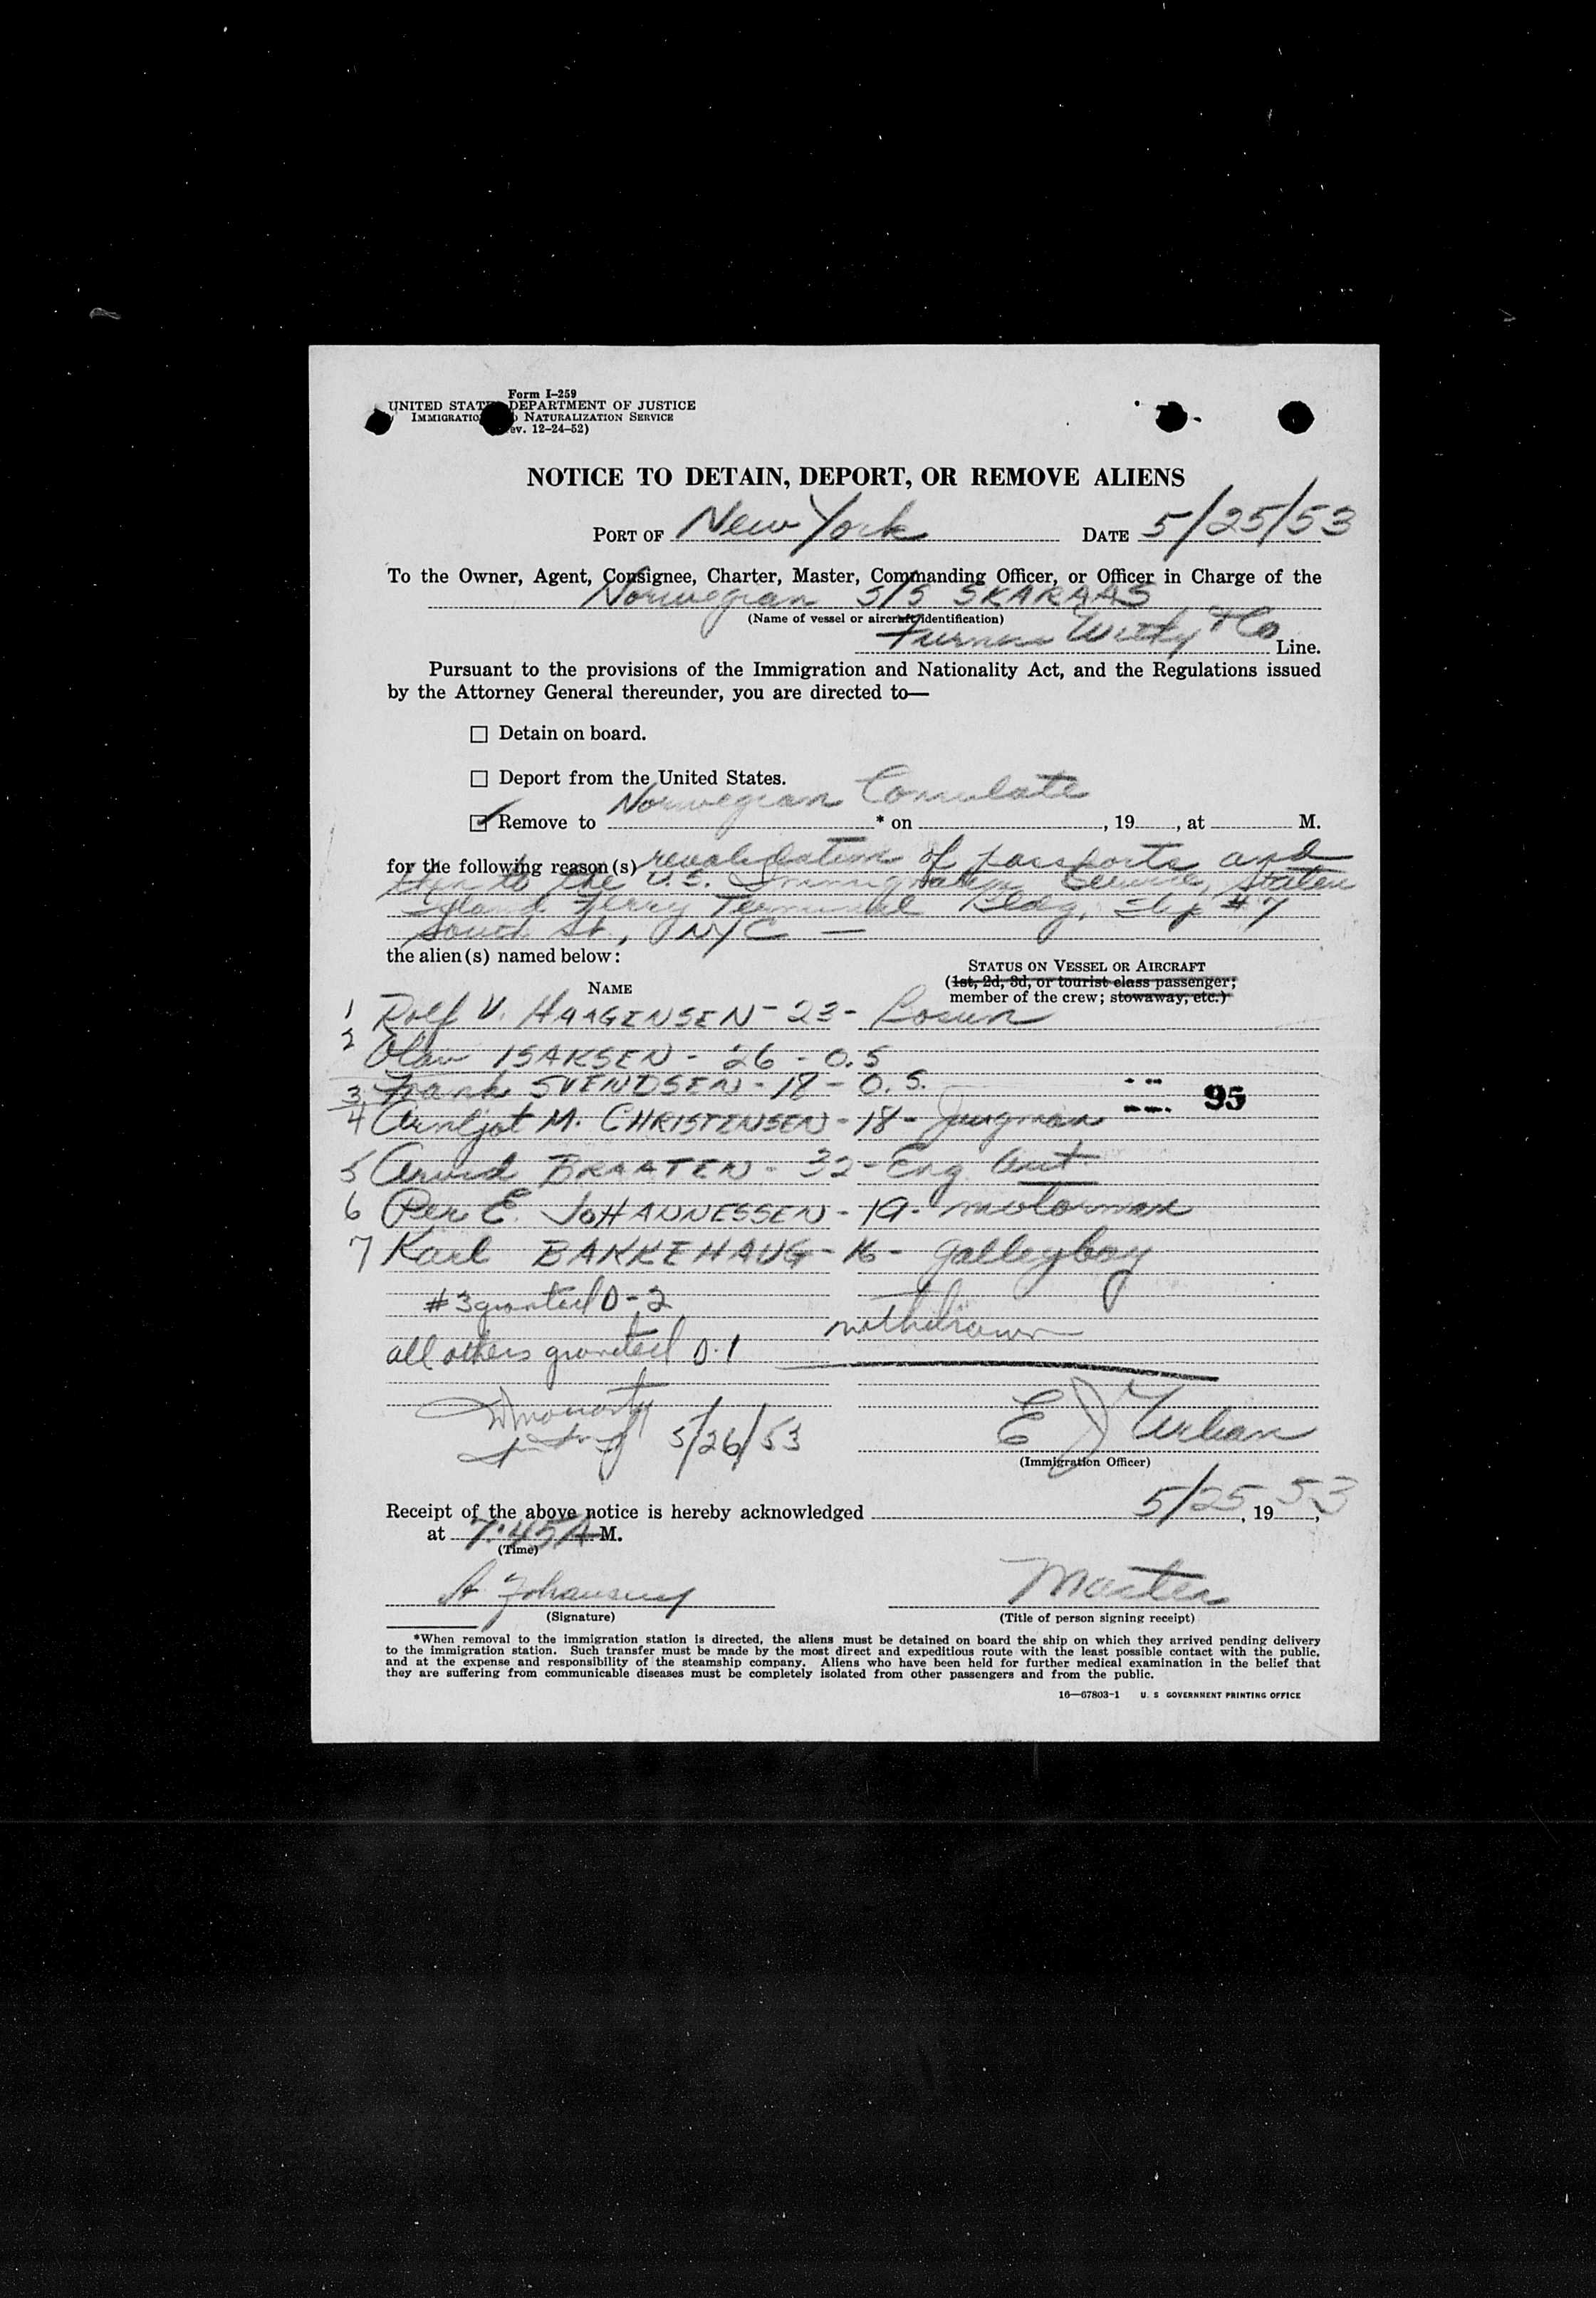 Form I-259
UNITED STATES DEPARTMENT OF JUSTICE
IMMIGRATION NATURALIZATION SERVICE
ev. 12-24-52)
NOTICE TO DETAIN, DEPORT, OR REMOVE ALIENS
PORT OF New York DATE 5/25/53
To the Owner, Agent, Consignee, Charter, Master, Commanding Officer, or Officer in Charge of the
Norwegian S/S SKARAAS
(Name of vessel or aircraft identification)
Furness Withy & Co Line.
Pursuant to the provisions of the Immigration and Nationality Act, and the Regulations issued
by the Attorney General thereunder, you are directed to—
Detain on board.
Deport from the United States.
Remove to Norwegian Consulate * on , 19 , at M.
for the following reason(s) revalidation of passports and
then to the U.S. Immigration Service, Staten
Island Ferry Terminal Bldg, Slip #7
South St., NYC —
the alien(s) named below:
STATUS ON VESSEL OR AIRCRAFT
NAME (1st, 2d, 3d, or tourist class passenger;
member of the crew; stowaway, etc.)
1 Rolf V. HAAGENSEN - 23 - Bosun
2 Olav ISAKSEN - 26 - O.S
3 Frank SVENDSEN - 18 - O.S.
95
4 Arnljot M. CHRISTENSEN - 18 - Jungman
5 Arvid BRAATEN - 32 - Eng. Asst.
6 Per E. JOHANNESSEN - 19 - motorman
7 Karl BAKKEHAUG - 16 - galleyboy
#3 granted D-2
withdrawn
all others granted D-1
5/26/53
E J Urban
(Immigration Officer)
Receipt of the above notice is hereby acknowledged 5/25, 19 53,
at 7:45 A M.
(Time)
A Johansen Master
(Signature) (Title of person signing receipt)
*When removal to the immigration station is directed, the aliens must be detained on board the ship on which they arrived pending delivery
to the immigration station. Such transfer must be made by the most direct and expeditious route with the least possible contact with the public,
and at the expense and responsibility of the steamship company. Aliens who have been held for further medical examination in the belief that
they are suffering from communicable diseases must be completely isolated from other passengers and from the public.
16—67803-1 U. S GOVERNMENT PRINTING OFFICE